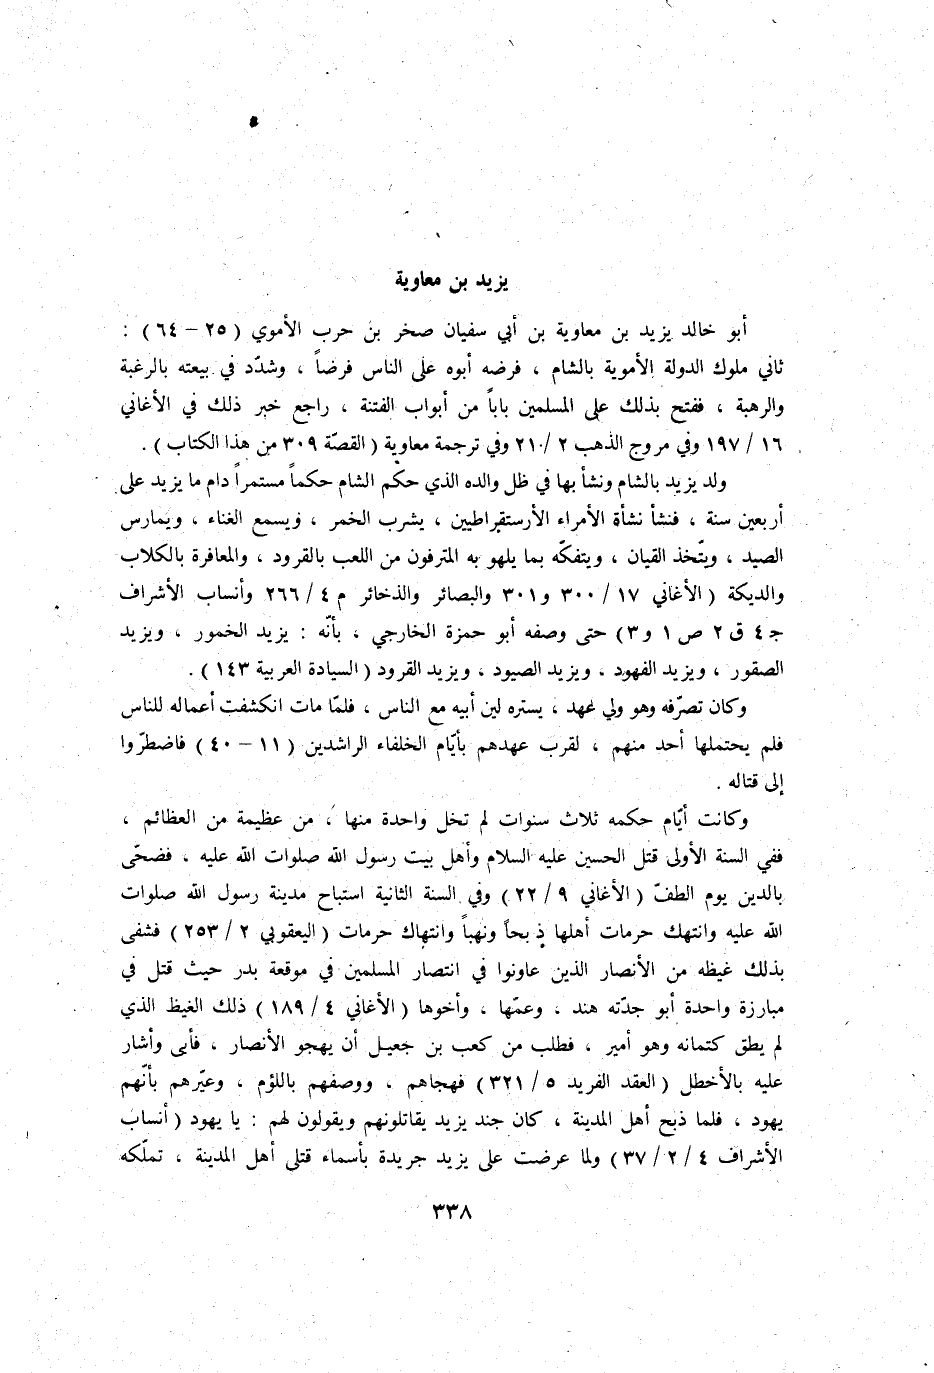 يزيد بن معاوية
أبو خالد يزيد بن معاوية بن أبي سفيان صخر بن حرب الأموي ( ٢٥ – ٦٤ ) :
ثاني ملوك الدولة الأموية بالشام ، فرضه أبوه على الناس فرضاً ، وشدّد في بيعته بالرغبة
والرهبة ، ففتح بذلك على المسلمين باباً من أبواب الفتنة ، راجع خبر ذلك في الأغاني
١٦ / ١٩٧ وفي مروج الذهب ٢ / ٢١٠ وفي ترجمة معاوية ( القصّة ٣٠٩ من هذا الكتاب ) .
ولد يزيد بالشام ونشأ بها في ظل والده الذي حكم الشام حكماً مستمراً دام ما يزيد على
أربعين سنة ، فنشأ نشأة الأمراء الأرستقراطيين ، يشرب الخمر ، ويسمع الغناء ، ويمارس
الصيد ، ويتّخذ القيان ، ويتفكّه بما يلهو به المترفون من اللعب بالقرود ، والمعافرة بالكلاب
والديكة ( الأغاني ١٧ / ٣٠٠ و ٣٠١ والبصائر والذخائر م ٤ / ٢٦٦ وأنساب الأشراف
ج ٤ ق ٢ ص ١ و ٣ ) حتى وصفه أبو حمزة الخارجي ، بأنّه : يزيد الخمور ، ويزيد
الصقور ، ويزيد الفهود ، ويزيد الصيود ، ويزيد القرود ( السيادة العربية ١٤٣ ) .
وكان تصرّفه وهو ولي عهد ، يستره لين أبيه مع الناس ، فلمّا مات انكشفت أعماله للناس
فلم يحتملها أحد منهم ، لقرب عهدهم بأيّام الخلفاء الراشدين ( ١١ – ٤٠ ) فاضطرّوا
إلى قتاله .
وكانت أيّام حكمه ثلاث سنوات لم تخل واحدة منها ، من عظيمة من العظائم ،
ففي السنة الأولى قتل الحسين عليه السلام وأهل بيت رسول الله صلوات الله عليه ، فضحّى
بالدين يوم الطفّ ( الأغاني ٩ / ٢٢ ) وفي السنة الثانية استباح مدينة رسول الله صلوات
الله عليه وانتهك حرمات أهلها ذبحاً ونهباً وانتهاك حرمات ( اليعقوبي ٢ / ٢٥٣ ) فشفى
بذلك غيظه من الأنصار الذين عاونوا في انتصار المسلمين في موقعة بدر حيث قتل في
مبارزة واحدة أبو جدّته هند ، وعمّها ، وأخوها ( الأغاني ٤ / ١٨٩ ) ذلك الغيظ الذي
لم يطق كتمانه وهو أمير ، فطلب من كعب بن جعيل أن يهجو الأنصار ، فأبى وأشار
عليه بالأخطل ( العقد الفريد ٥ / ٣٢١ ) فهجاهم ، ووصفهم باللؤم ، وعيّرهم بأنّهم
يهود ، فلما ذبح أهل المدينة ، كان جند يزيد يقاتلونهم ويقولون لهم : يا يهود ( أنساب
الأشراف ٤ / ٢ / ٣٧ ) ولما عرضت على يزيد جريدة بأسماء قتلى أهل المدينة ، تملّكه
٣٣٨